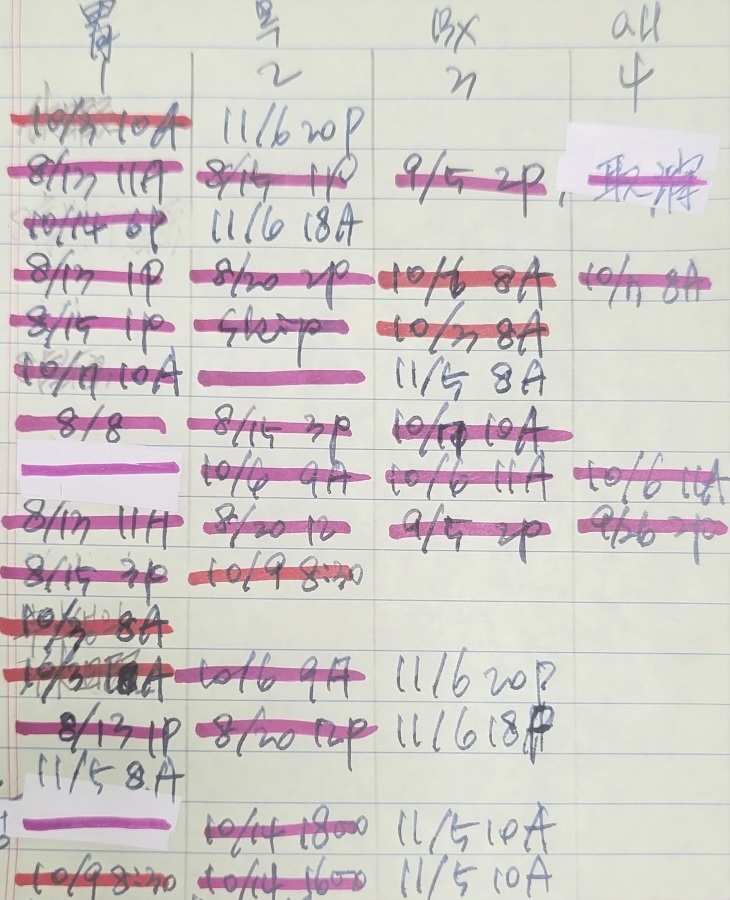 Bx all
1 2 3 4
10/3 10A 11/6 20P
8/13 11A 8/15 1P 9/5 2P 取消
10/14 6P 11/6 18A
8/13 1P 8/20 2P 10/6 8A 10/7 8A
8/15 1P Skip 10/3 8A
10/7 10A 11/5 8A
8/8 8/15 3P 10/17 10A
10/6 9A 10/6 11A 10/6 11A
8/13 11A 8/20 12 9/5 2P 9/26 2P
8/15 3P 10/9 8:30
10/3 8A
10/3 A 10/6 9A 11/6 20P
8/13 1P 8/20 12P 11/6 18P
11/5 8A
10/14 1800 11/5 10A
10/9 8:30 10/14 1600 11/5 10A